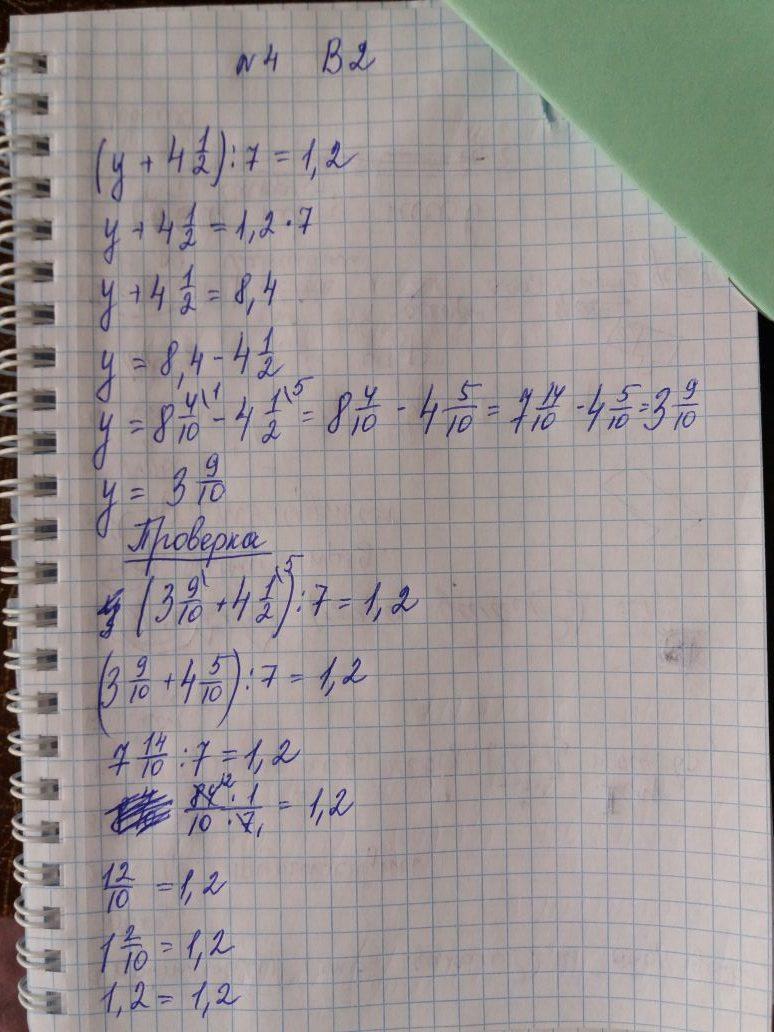 №4 В2
(y + 4 1/2) : 7 = 1,2
y + 4 1/2 = 1,2 · 7
y + 4 1/2 = 8,4
y = 8,4 - 4 1/2
y = 8 4/10 \1 - 4 1/2 \5 = 8 4/10 - 4 5/10 = 7 14/10 - 4 5/10 = 3 9/10
y = 3 9/10
Проверка
(3 9/10 \ + 4 1/2 \5) : 7 = 1,2
(3 9/10 + 4 5/10) : 7 = 1,2
7 14/10 : 7 = 1,2
84 12 · 1 / 10 · 7 1 = 1,2
12/10 = 1,2
1 2/10 = 1,2
1,2 = 1,2